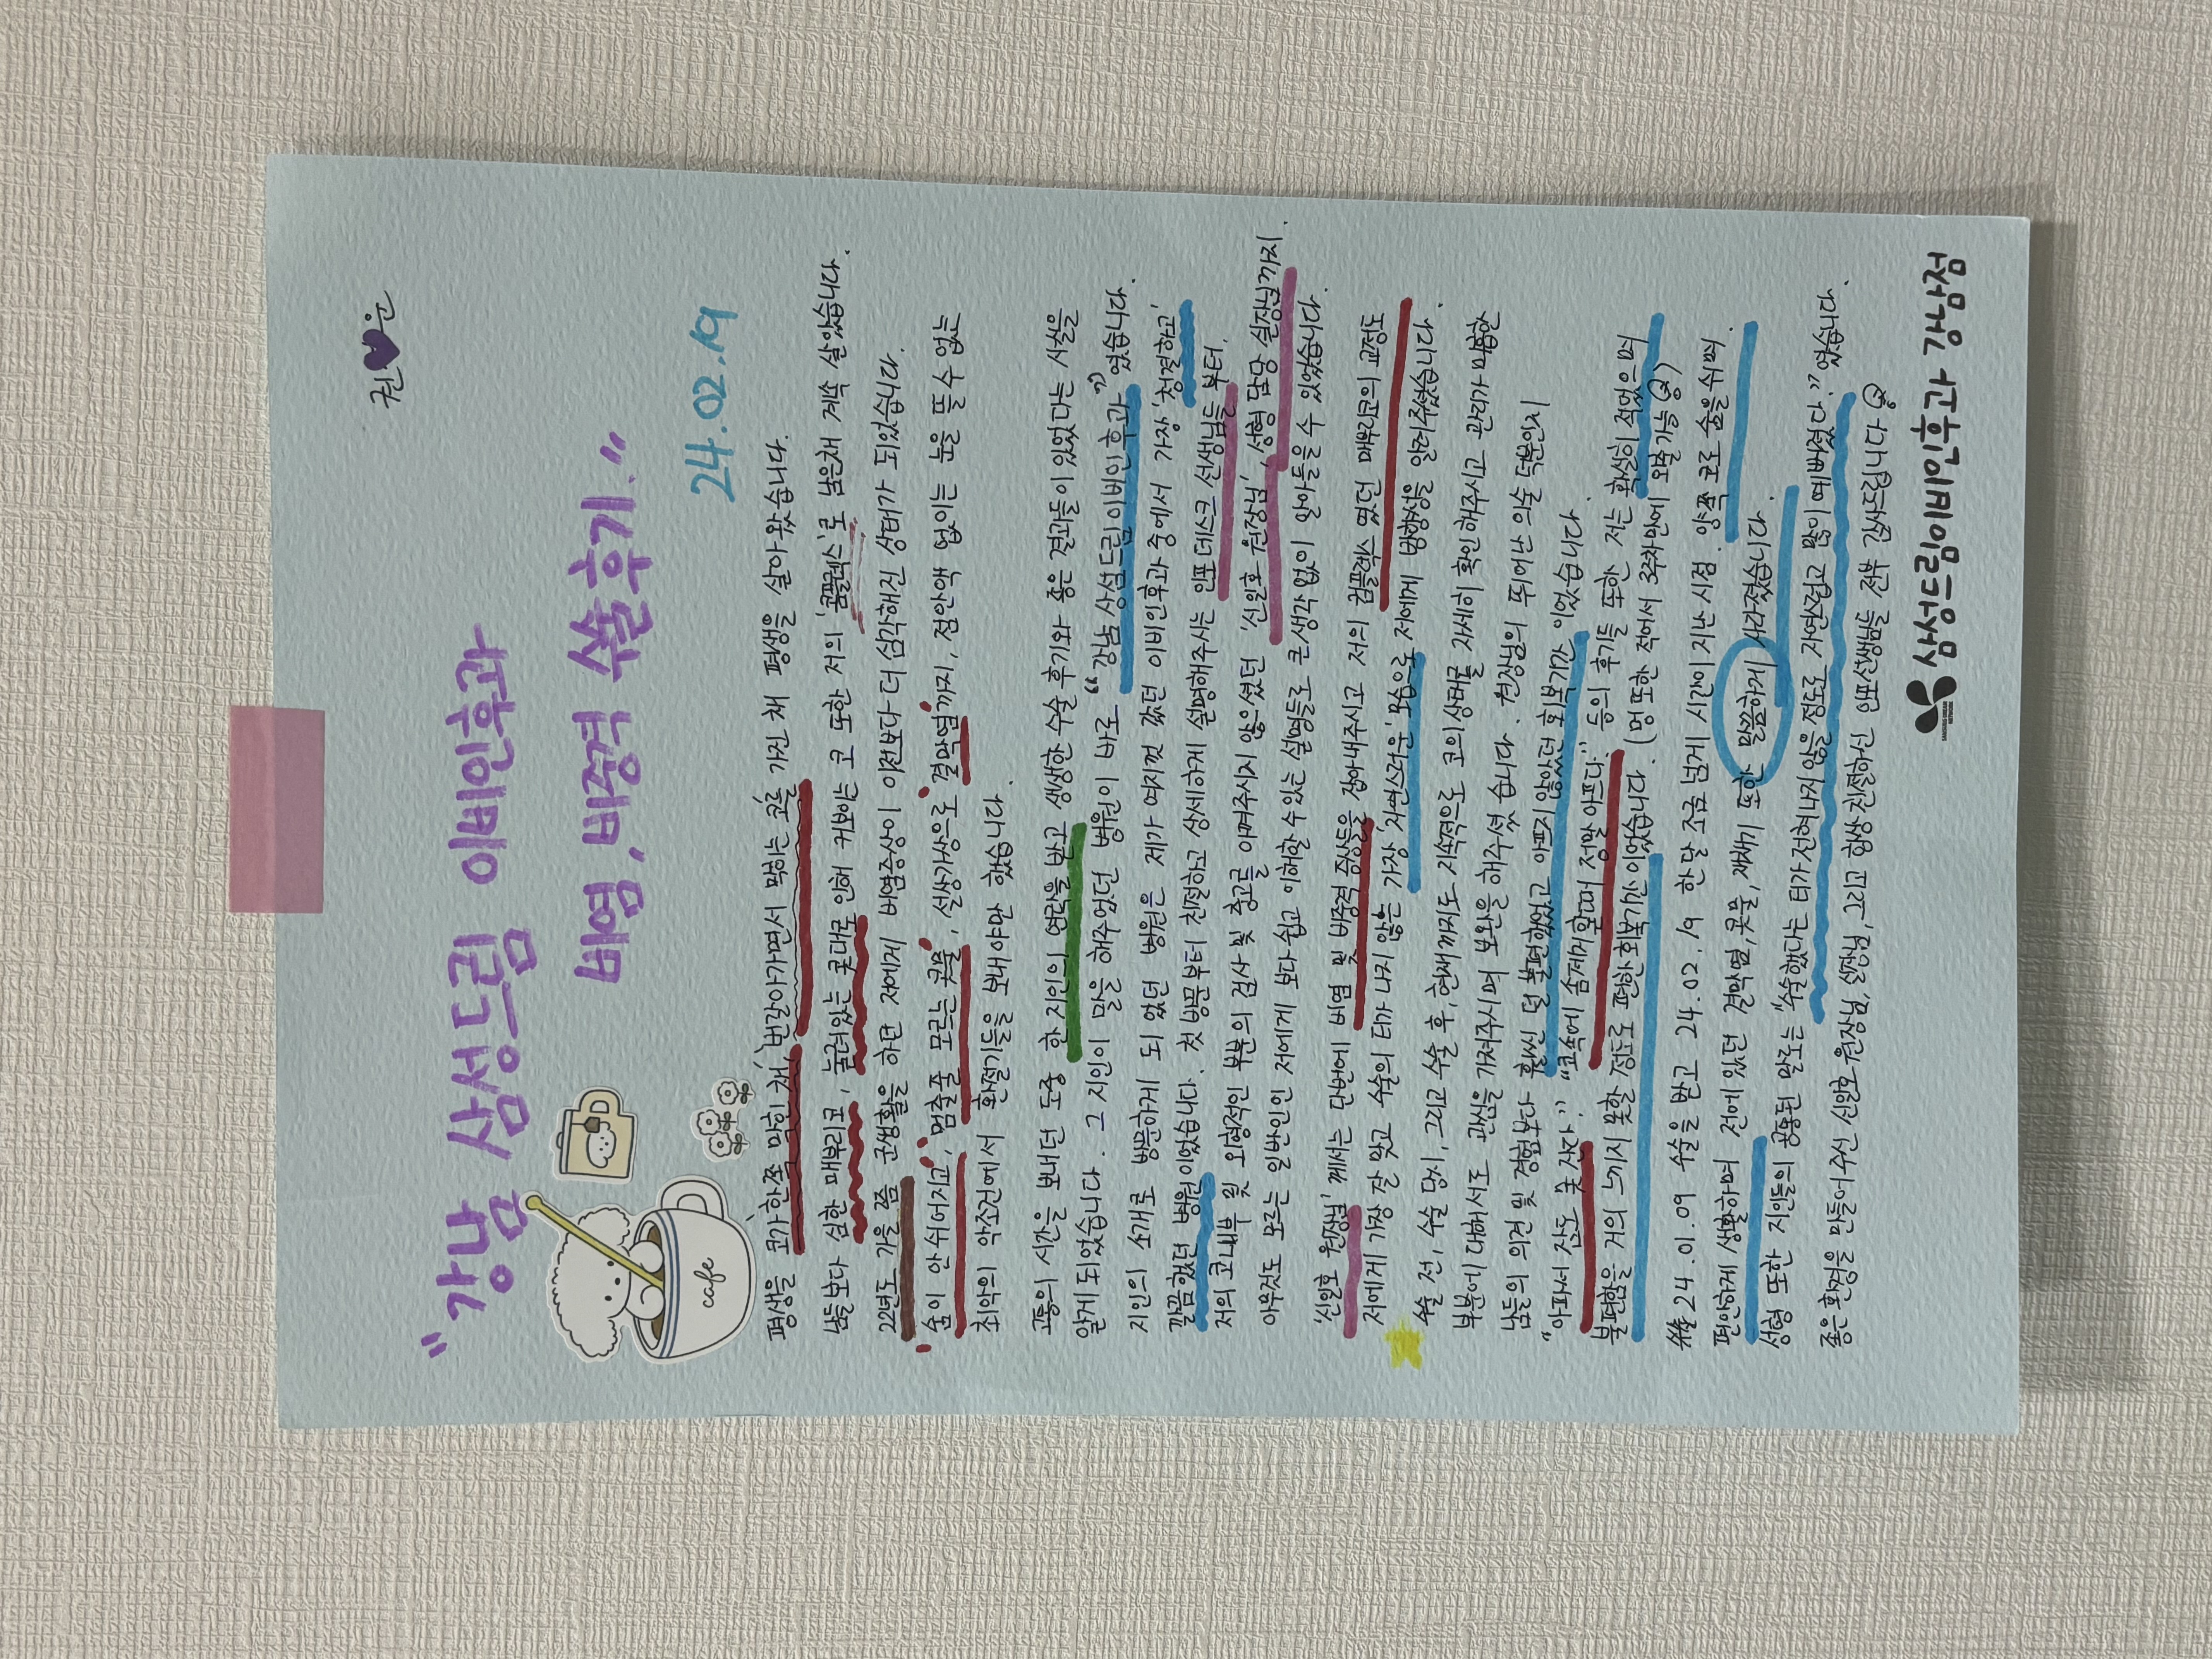 권💜운
"강남 삼성드림 이비인후과
비염, 비중격 수술후기."
cafe
24.02.19
평생을 코가 '한쪽 막힌 채', '번갈아가면서 막히는 코'를 가진 채 평생을 살아왔습니다.
남들보다 심한 매부리코, 눌려있는 콧대로 인해 커보이는 코 또한 저의 '콤플렉스'로 남은채 계속 살았습니다.
22년도 가을 쯤 군생활을 하던 저에게 비염증상이 이전보다 더 심각해진 상태가 되었습니다.
'숨이 안 쉬어지고', '멈출줄 모르는 콧물', 설상가상으로 '결막염'까지, 점안액 없이는 눈을 뜰 수 없는
최악의 악조건에서 환절기들을 보내야만 했습니다.
고통의 시간을 보내던 도중 한 지인의 연락을 받고 생생한 수술 후기와 좋은 결과들이 있었다는 사실을
알게 되었습니다. 그 지인이 말을 해주었던 병원이 바로 "강남 삼성드림이비인후과"였습니다.
지인의 소개로 방문하게 되었던 병원은 제가 여지껏 갔던 이비인후과 중에서 가장 '청결하고'
깔끔했던 병원이었습니다. 첫 방문부터 친절하고 상세하게 설명해주시는 인포데스크 선생님들 부터,
저의 코내부 및 외형적인 부분의 검사 및 충고를 아껴주시지 않으셨던 '신일호 원장님', 성형 담당 실장님까지.
아무것도 모르는 일반인인 저에게 보다 쉽고 이해할 수 있는 설명들로 큰 생각 없이 알아들을 수 있었습니다.
'신일호 원장님' 께서는 단번에 비염 및 비중격 증상들을 잡아내주시고 저의 컴플렉스 였던 매부리코의 교정도
저에게 가장 잘 맞고 수술의 티가 나지 않는 가장 '자연스러운' 모습으로 저에게 방향성을 알려주셨습니다.
수술 전, 수술 당시, 그리고 수술 후, 현재까지도 지속적으로 코의 상태를 자세히 확인해주시고 관리가 미흡한
부분에 대해서도 관심을 가져주시며 보완을 해주셨습니다. 원장님의 뛰어난 의술 덕분인지
남들의 의견 및 경험보다 훨씬 덜 불편했었고 아프지 않았던 회복기간 이었습니다.
"아파서 잠도 못 잔다." "코속에 솜제거할때 정말 아프다." 등의 후기들 또한 저는 확실히 적었으며
불편함을 거의 느끼지 못할 정도로 편한 회복기간 이었습니다. (멍 또한 적어서 3주차만에 외출가능)
24.01.09 수술을 받고 24.02.19 한달 조금 넘게 시간이 지난 시점. 양쪽 코로 숨을 쉬며
편안하게 생활하며 전에 있던 결막염, 콧물, 재채기 또한 말끔하게 사라졌습니다.
성형 또한 지인들의 공통된 말로는 "수술했다는 티가 전혀나지 않을 정도로 자연스럽고 많이 예뻐졌다." 였습니다.
좋은 환경을 만들어 주신 신일호 원장님, 실장님, 그리고 항상 친절하신 인포선생님들 전부 감사드립니다
SAMSUNG DREAM NETWORK
삼성드림이비인후과 강남점